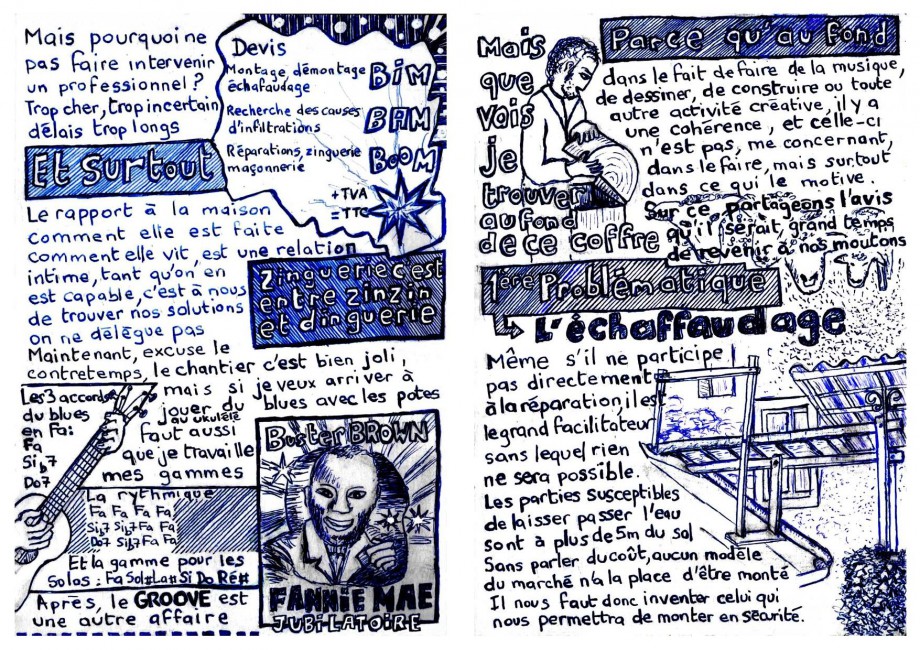 Mais pourquoi ne
pas faire intervenir
un professionnel ?
Trop cher, trop incertain
délais trop longs
Devis
Montage, démontage
échafaudage
BIM
Recherche des causes
d'infiltrations
BAM
Réparations, zinguerie
maçonnerie
BOOM
+TVA
=TTC
Et surtout
Le rapport à la maison
comment elle est faite
comment elle vit, est une relation
intime, tant qu'on en
est capable, c'est à nous
de trouver nos solutions
on ne délègue pas
Zinguerie c'est
entre zinzin
et dinguerie
Maintenant, excuse le
contretemps, le chantier c'est bien joli,
mais si je veux arriver à
jouer du blues avec les potes
au ukulélé
faut aussi
que je travaille
mes gammes
Les 3 accords
du blues
en Fa:
Fa
Sib7
Do7
La rythmique
Fa Fa Fa Fa
Sib7 Sib7 Fa Fa
Do7 Sib7 Fa Fa
Et la gamme pour les
solos : Fa Sol# La# Si Do Ré#
Après, le GROOVE est
une autre affaire
Buster BROWN
FANNIE MAE
JUBILATOIRE
Mais
que
vais
je
trouver
au fond
de ce coffre
Parce qu'au fond
dans le fait de faire de la musique,
de dessiner, de construire ou toute
autre activité créative, il y a
une cohérence, et celle-ci
n'est pas, me concernant,
dans le faire, mais surtout
dans ce qui le motive.
Sur ce, partageons l'avis
qu'il serait, grand temps
de revenir à nos moutons
1ère Problématique
L'échaffaudage
Même s'il ne participe
pas directement
à la réparation, il est
le grand facilitateur
sans lequel rien
ne sera possible.
Les parties susceptibles
de laisser passer l'eau
sont à plus de 5m du sol
Sans parler du coût, aucun modèle
du marché n'a la place d'être monté
Il nous faut donc inventer celui qui
nous permettra de monter en sécurité.